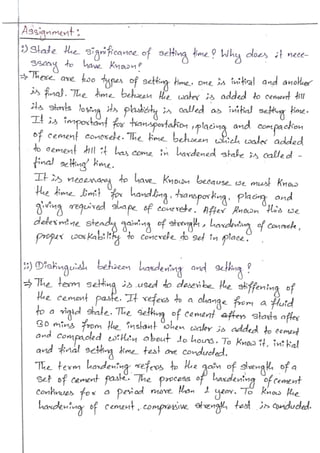 Assignment:
i) State the significance of setting time? Why does it nece-
ssary to have Known?
⇒ There are two types of setting time. one is initial and another
is final. The time between the water is added to cement till
its starts losing its plasticity is called as initial setting time.
It is important for transportation, placing and compaction
of cement concrete. The time between which water added
to cement till it has come in hardened state is called -
final setting time.
It is necessary to have Known because we must Know
the time limit for handling, transporting, placing and
giving required shape of concrete. After Known this we
determine steady gaining of strength, hardening of concrete,
proper workability to concrete to set in place.
ii) Distinguish between hardening and setting?
⇒ The term setting is used to describe the stiffening of
the cement paste. It refers to a change from a fluid
to a rigid state. The setting of cement starts after
30 mins from the instant when water is added to cement
and compacted within about 10 hours. To Know it, initial
and final setting time test are conducted.
The term hardening refers to the gain of strength of a
set of cement paste. The process of hardening of cement
continues for a period more than 1 year. To Know the
hardening of cement, compressive strength test is conduded.